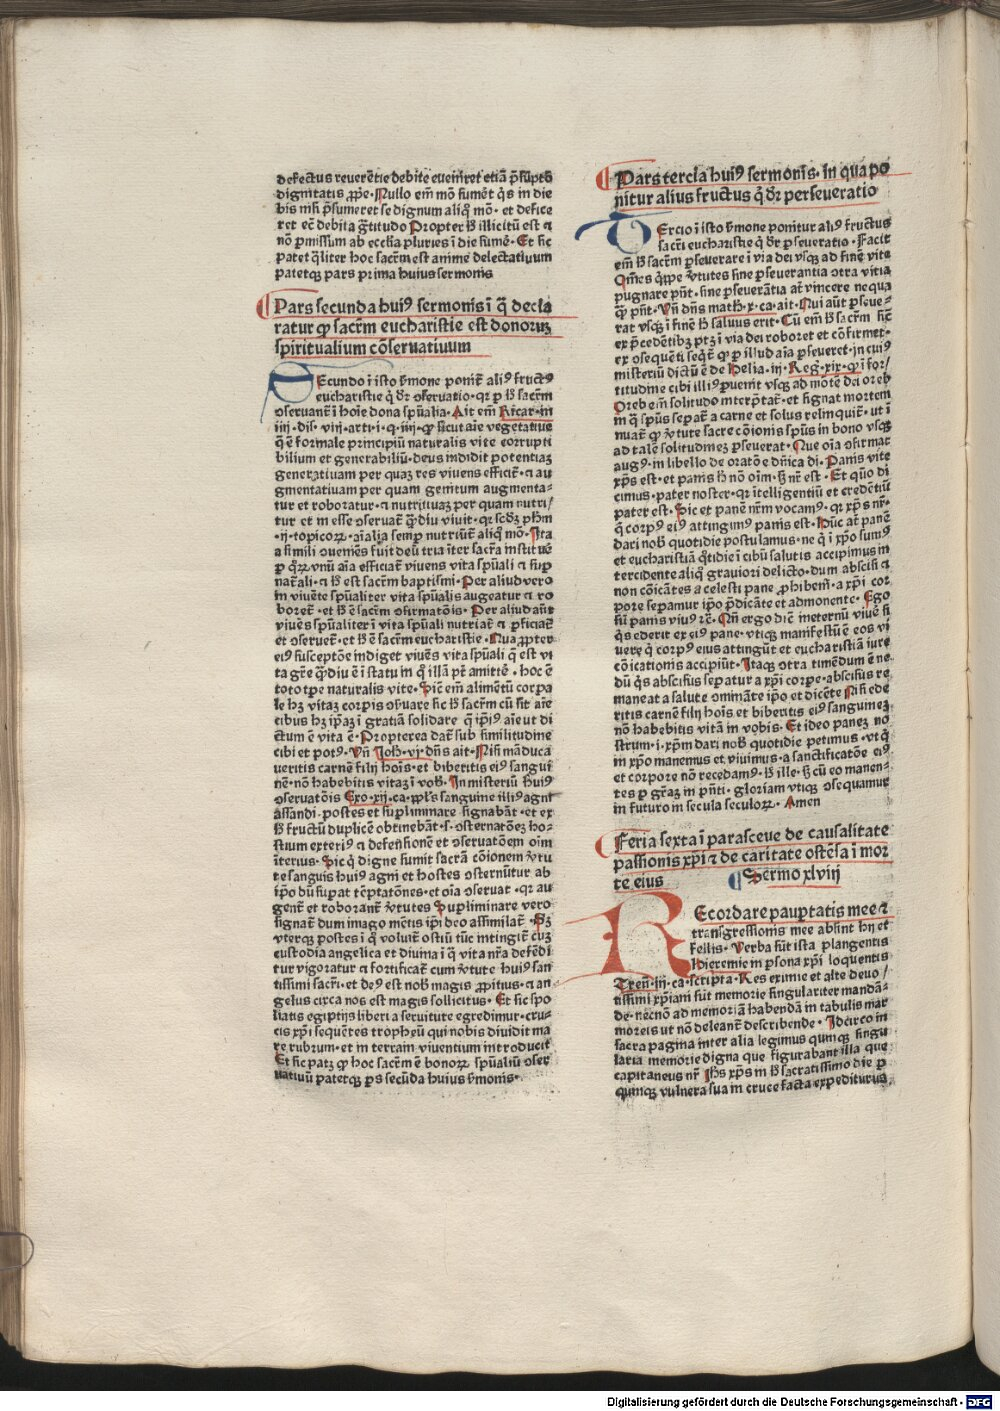 defectus reuerẽtie debite eueniret etiã p̃sũpto
dignitatis ꝓpe. Nullo em̃ mõ sumẽt q̃s in die
bis nisi p̃sumeret se dignum aliq̃ mõ. et defice
ret ec̃ debita g̃titudo Propter ħ illicitũ est ⁊
nõ p̃missum ab ecclia pluries ĩ die sumẽ. Et sic
patet q̃liter hoc sacr̃m est anime delectatiuum
patetqꝫ pars prima huius sermonis
Pars secunda huiꝰ sermonis ĩ q̃ decla
ratur ꝙ sacr̃m eucharistie est donorum
spiritualium cõseruatiuum
Secundo ĩ isto s̃mone ponit̃ aliꝰ fructꝰ
eucharistie q̃ dr̃ ↄseruatio. qꝛ p ħ sacr̃m
ↄseruant̃ ĩ hoie dona sp̃ualia. Ait em̃ Ricar. in
iiij. dis. viij. arti. i. q. iiij. ꝙ sicut aĩe vegetatiue
q̃ ẽ formale principiũ naturalis vite corrupti
bilium et generabiliũ. deus indidit potentiaꝫ
generatiuam per quaꝫ res viuens efficit̃. ⁊ au
gmentatiuam per quam genitum augmenta-
tur et roboratur. ⁊ nutritiuaꝫ per quam nutri/
tur et in esse ↄseruat̃ q̃ꝫdiu viuit. qꝛ scdꝫ ph̃m
.ij. topicoꝝ. aĩalia semp̃ nutriũt̃ aliq̃ mõ. Ita
a simili ↄueniẽs fuit deũ tria iter sacr̃a instituẽ
p̃ q̃ꝝ vnũ aĩa efficiat̃ viuens vita sp̃uali ⁊ sup̃
nat̃ali. ⁊ ħ est sacr̃m baptismi. Per aliud vero
in viuẽte sp̃ualiter vita sp̃ualis augeatur ⁊ ro
boret̃. et ħ ẽ sacr̃m ↄfirmatõis. Per aliud aũt
viuẽs sp̃ualiter ĩ vita sp̃uali nutriat̃ ⁊ p̃ficiat̃
et ↄseruet̃. et ħ ẽ sacr̃m eucharistie. Qua ꝓpter
eiꝰ susceptõe indiget viuẽs vita sp̃uali q̃ est vi
ta gr̃e q̃ꝫdiu ẽ ĩ statu in q̃ illã pt̃ amitte. hoc ẽ
toto tp̃e naturalis vite. Sic em̃ alimẽtũ corpa
le hꝫ vitaꝫ corpis ↄ̃suare sic ħ sacr̃m cũ sit aĩe
cibus hꝫ ip̃aꝫ ĩ gratiã solidare q̃ ip̃iꝰ aĩe ut di
ctum ẽ vita ẽ. Propterea dat̃ sub similitudine
cibi et potꝰ. Vñ Joħ. vj. dñs ait. Nisi mãduca
ueritis carnẽ filij hoĩs. et biberitis eiꝰ sangui
nẽ. nõ habebitis vitaꝫ ĩ vob̃. In misteriũ huiꝰ
ↄseruatõis Exo. xij. ca. ppl̃s sanguine illiꝰ agni
assandi. postes et supliminare signabãt. et ex
ħ fructũ duplicẽ obtinebãt. s. ↄsternatõeꝫ ho-
stium exteriꝰ ⁊ defensionẽ et ↄseruatõem oĩm
ĩteriꝰ. Sic q̃ digne sumit sacrã cõionem v̓tu
te sanguis huiꝰ agni et hostes ↄsternũtur ab
ip̃o dũ sup̃at tẽptatõnes. et oĩa ↄseruat. qꝛ au
gent̃ et roborant̃ v̓tutes Supliminare vero
signat̃ dum imago mẽtis ip̃i deo assimilat̃. Sꝫ
vterqꝫ postes ĩ q̃ voluit̃ ostiũ tũc intingit̃ cuꝫ
custodia angelica et diuina ĩ q̃ vita nr̃a defẽdi
tur vigoratur ⁊ fortificat̃ cum v̓tute huiꝰ san
tissimi sacr̃i. et deꝰ est nob̃ magis ꝓpitius. ⁊ an
gelus circa nos est magis sollicitus. Et sic spo
liatis egiptijs liberi a seruitute egredimur. cru-
cis xp̃i sequẽtes tropheũ qui nobis diuidit ma
re rubrum. et in terram viuentium introducit
Et sic patꝫ ꝙ hoc sacr̃m ẽ bonoꝝ sp̃ualiũ ↄser
uatiuũ patetqꝫ p̃s secũda huius s̃monis.
Pars tercia huiꝰ sermonis. in qua po
nitur alius fructus q̃ dr̃ perseueratio
Tercio ĩ isto s̃mone ponitur aliꝰ fructus
sacr̃i eucharistie q̃ dr̃ p̃seueratis. Facit
em̃ ħ sacr̃m p̃seuerare ĩ via dei vsqꝫ ad finẽ vite
Oẽs q̃ppe v̓tutes sine p̃seuerantia ↄtra vitia
pugnare pñt. sine p̃seuerãtia at̃ vincere nequa
q̃ pñt. Vñ dñs matħ. x. ca. ait. Qui aũt p̃seue-
rat vsqꝫ ĩ finẽ ħ saluus erit. Cũ em̃ ħ sacr̃m sic̃
ex p̃cedẽtibꝫ ptꝫ ĩ via dei roboret et cõfirmet.
ex ↄsequẽti seq̃t̃ ꝙ p̃ illud aĩa p̃seueret. jn cuiꝰ
misteriũ dictũ ẽ de Helia. iij. Reg. xix. ꝙ ĩ for/
titudine cibi illiꝰ puenit vsqꝫ ad mõtẽ dei oreb
Oreb em̃ solitudo interp̃tat̃. et signat mortem
in q̃ sp̃us sepat̃ a carne et solus relinquit̃. ut ĩ
nuat̃ ꝙ v̓tute sacre cõionis sp̃us in bono vsqꝫ
ad talẽ solitudineꝫ p̃seuerat. Que oĩa ↄfirmat
augꝰ. in libello de oratõe dñica di. Panis vite
xp̃s est. et panis ħ nõ oĩm. sꝫ nr̃ est. Et quõ di
cimus. pater noster. qꝛ ĩtelligentiũ et credẽtiũ
pater est. Sic et panẽ nr̃m vocamꝰ. qꝛ xp̃s nr̃.
q̃ corpꝰ eiꝰ attingimꝰ panis est. Hũc at̃ panẽ
dari nob̃ quotidie postulamus. ne q̃ ĩ xp̃o sumꝰ
et eucharistiã q̃tidie ĩ cibũ salutis accipimus in
tercidente aliq̃ grauiori delicto. dum abscisi ⁊
non cõicãtes a celesti pane ꝓhibem̃. a xp̃i cor
pore sepamur ip̃o p̃dicãte et admonente. Ego
sũ panis viuꝰ ⁊c̃. Qñ ergo dic̃ ineternũ viuẽ si
q̃s ederit ex eiꝰ pane. vtiqꝫ manifestũ ẽ eos vi
uere q̃ corpꝰ eius attingũt et eucharistiã iure
cõicationis accipiũt. Itaqꝫ ↄtra timẽdum ẽ ne
dũ q̃s abscisus sepatur a xp̃i corpe. abscisus re
maneat a salute ↄminãte ip̃o et dicẽte Nisi ede
ritis carnẽ filij hoĩs et biberitis eiꝰ sanguineꝫ
nõ habebitis vitã in vobis. Et ideo paneꝫ no
strum. i. xp̃m dari nob̃ quotidie petimus. vt q̃
in xp̃o manemus et viuimus. a sanctificatõe eiꝰ
et corpore nõ recedamꝰ. ħ ille. sꝫ cũ eo manen-
tes p gr̃aꝫ in pñti. gloriam vtiqꝫ ↄsequamur
in futuro in secula seculoꝝ. Amen
Feria sexta ĩ parasceue de causalitate
passionis xp̃i ⁊ de caritate ostẽsa ĩ mor
te eius Sermo xlviij
Recordare paupertatis mee ⁊
transgressionis mee absint hij et
fellis. Verba sũt ista plangentis
Hieremie in p̃sona xp̃i loquentis
Tren̄. iij. ca. scripta. Res eximie et alte deuo/
tissimi xp̃iani sũt memorie singulariter mandã-
de. necnõ ad memoriã habendã in tabulis mar
moreis ut nõ deleant̃ describende. Idcirco in
sacra pagina inter alia legimus quinqꝫ singu
laria memorie digna que figurabant illa que
capitaneus nr̃ ih̃s xp̃s in ħ sacratissimo die p
quinqꝫ vulnera sua in cruce facta expediturus
Digitalisierung gefördert durch die Deutsche Forschungsgemeinschaft - DFG